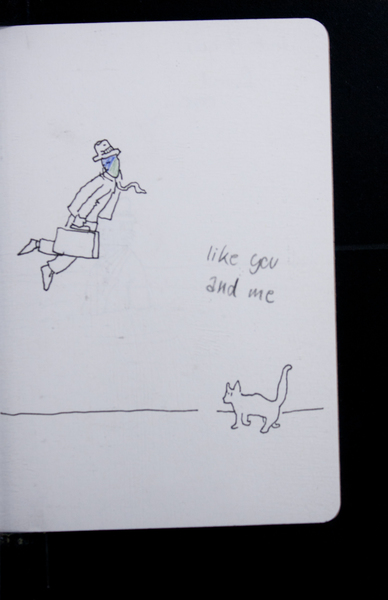 like you
and me